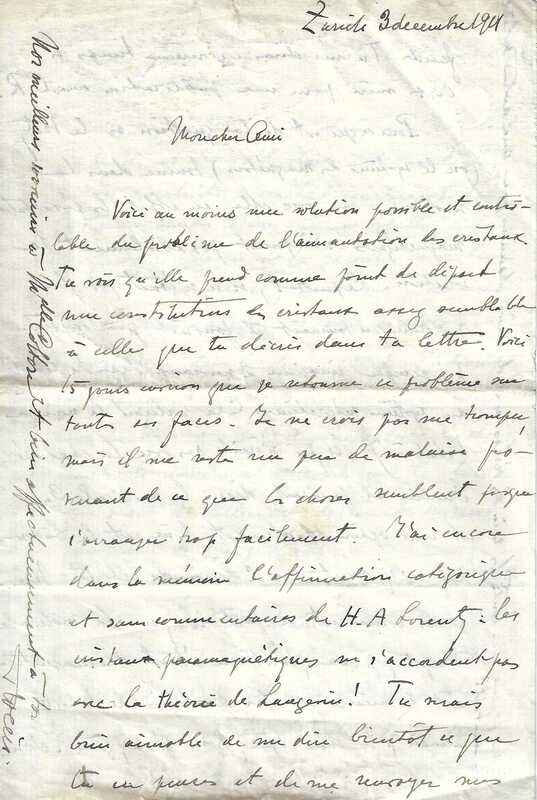 Zurich 3 decembre 1911
Mon cher Ami
Voici au moins une solution possible et contrô-
lable du problème de l'aimantation des cristaux.
Tu vois qu'elle prend comme point de départ
une constitution des cristaux assez semblable
à celle que tu décris dans ta lettre. Voici
15 jours environ que je retourne ce problème sur
toutes ses faces. Je ne crois pas me tromper
mais il me reste un peu de malaise pro-
venant de ce que les choses semblent presque
s'arranger trop facilement. J'ai encore
dans la mémoire l'affirmation catégorique
et sans commentaires de H. A Lorentz: les
cristaux paramagnétiques ne s'accordent pas
avec la théorie de Langevin! Tu serais
bien aimable de me dire bientôt ce que
tu en penses et de me renvoyer mes
Nos meilleurs souvenirs à Mdlle Cotton et bien affectueusement à toi
P Weiss.